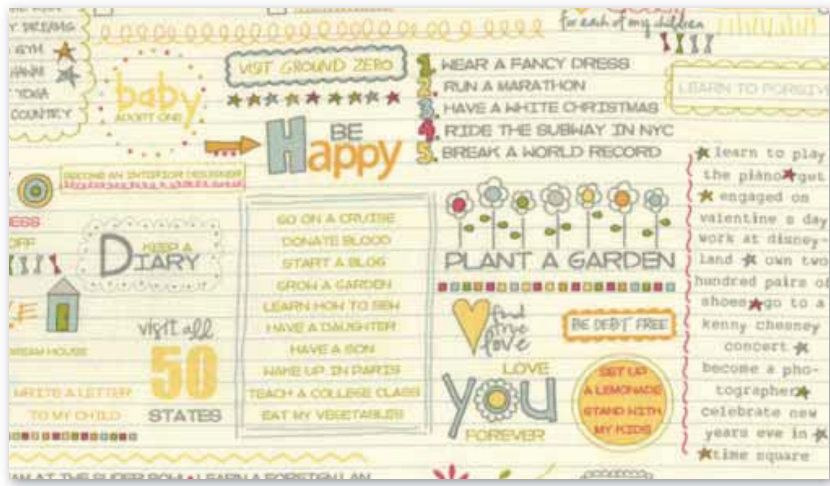 for each of my children
Y DREAMS
GYM
YOGA
COUNTRY
baby
ADOPT ONE
VISIT GROUND ZERO
BE
Happy
1. WEAR A FANCY DRESS
2. RUN A MARATHON
3. HAVE A WHITE CHRISTMAS
4. RIDE THE SUBWAY IN NYC
5. BREAK A WORLD RECORD
LEARN TO FORGIV
BECOME AN INTERIOR DESIGNER
ESS
OFF
KEEP A
DIARY
DREAM HOUSE
visit all
50
STATES
WRITE A LETTER
TO MY CHILD
GO ON A CRUISE
DONATE BLOOD
START A BLOG
GROW A GARDEN
LEARN HOW TO SEW
HAVE A DAUGHTER
HAVE A SON
WAKE UP IN PARIS
TEACH A COLLEGE CLASS
EAT MY VEGETABLES
PLANT A GARDEN
find
true
love
BE DEBT FREE
LOVE
you
FOREVER
SET UP
A LEMONADE
STAND WITH
MY KIDS
learn to play
the piano get
engaged on
valentine s day
work at disney-
land own two
hundred pairs of
shoes go to a
kenny chesney
concert
become a pho-
tographer
celebrate new
years eve in
time square
AM AT THE SUPER BOWL LEARN A FOREIGN LAN